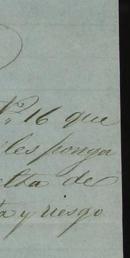 Nº 16 que
les ponga
elta de
ta y riesgo